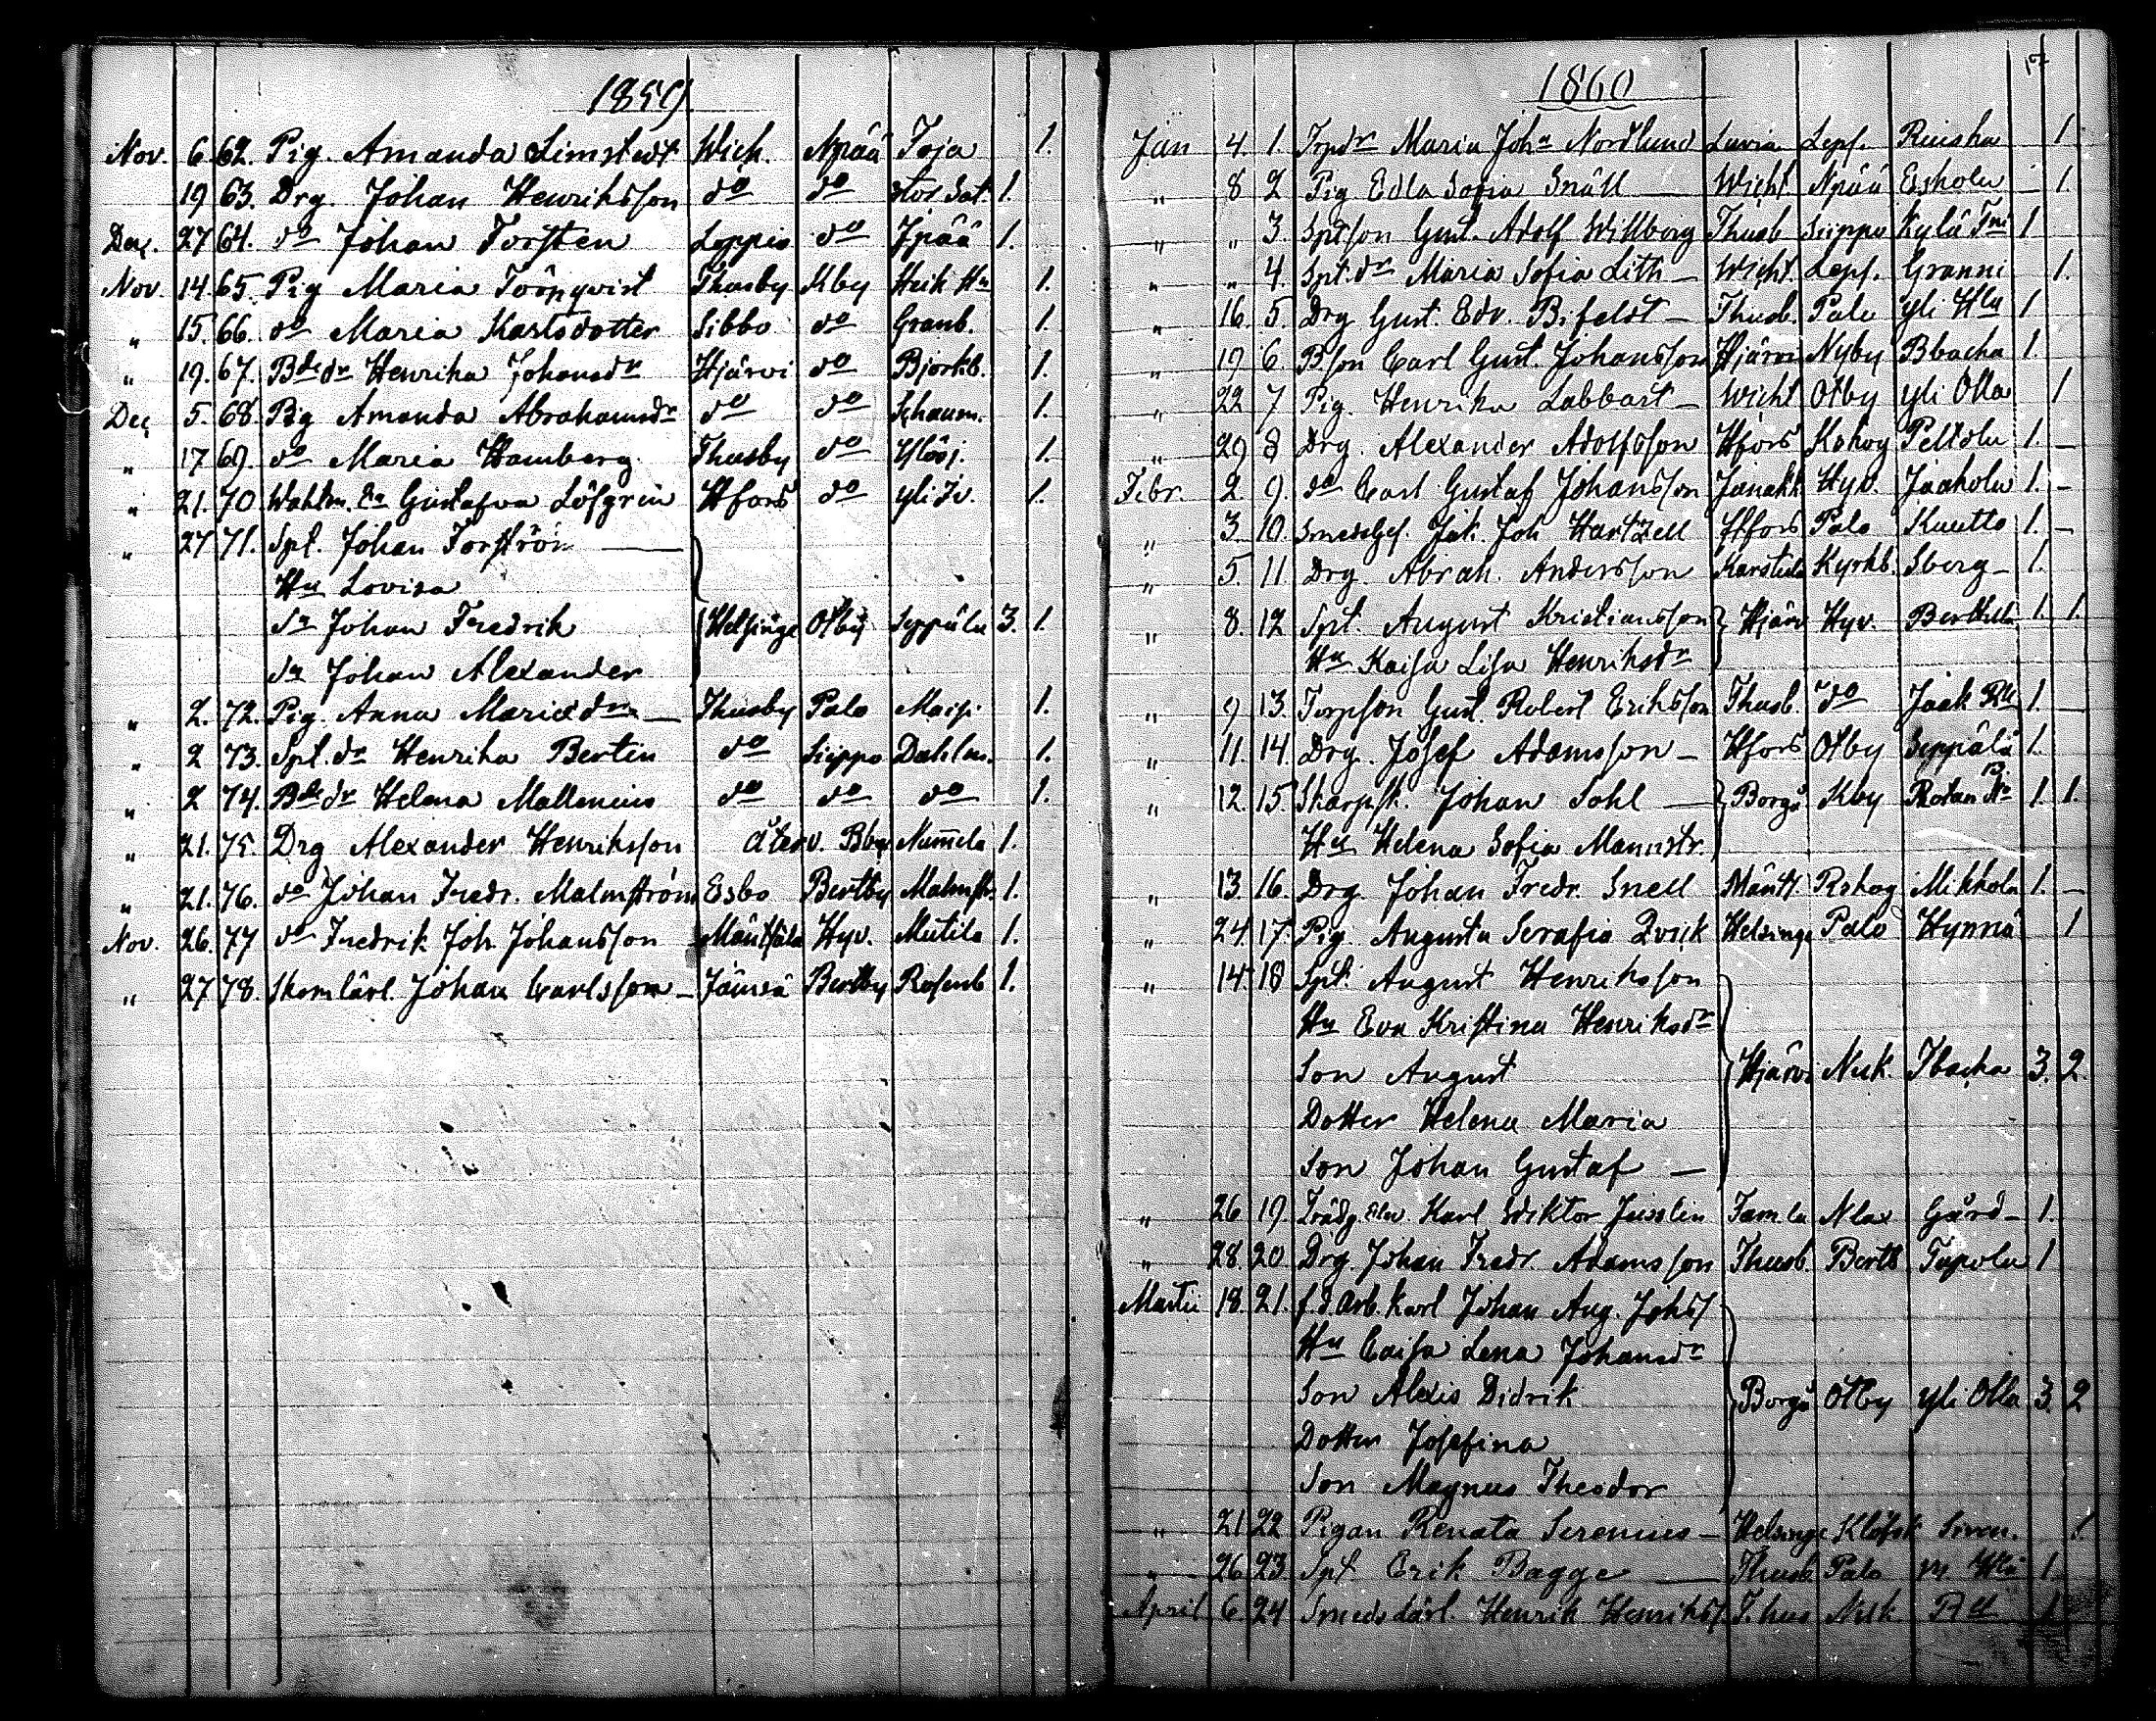 1859.
Nov. 6 62. Pig. Amanda Limstedt Wich. Npää Toja 1.
19 63. Drg. Johan Henriksson do do Stor Sat. 1.
Dec. 27 64. do Johan Torsten Loppis do Jpää 1.
Nov. 14 65. Pig Maria Törnqvist Thusby Kby Heik Ha 1.
" 15. 66. do Maria Karlsdotter Sibbo do Granb. 1.
" 19. 67. Bdedr Henrika Johansdr Hjärvi do Bjorkb. 1.
Dec 5. 68. Pig Amanda Abrahamsdr do do Schaum. 1.
" 17 69. do Maria Hamberg Thusby do Hlösj. 1.
" 21. 70 Gustafva Löfgren Hfors do yli 1.
" 27 71. Spt. Johan Forsström
Hu Lovisa
Sn Johan Fredrik Helsinge Otby Seppälä 3. 1.
Sn Johan Alexander
" 2. 72. Pig. Anna Mariædr Thusby Palo Maisi 1.
" 2 73. Spt. dr Henrika Bertin do Siippo Dahlm. 1.
" 2 74. Bdedr Helena Mallenius do do do 1.
" 21. 75. Drg Alexander Henriksson Återv. Bby Nummela 1.
" 21. 76. do Johan Fredr. Malmström Esbo Bertby Malmstr. 1.
Nov. 26. 77 do Fredrik Joh. Johansson Mäntsälä Hyv. Mutila 1.
" 27 78. Skom.lärl. Johan Carlsson Jämsä Bertby Rosenb 1.
1860
Jan 4. 1. Trpdr Maria Joha Nordlund Luvia Leps. Ruisha 1.
" 8 2 Pig Edla Sofia Snäll Wicht Npää Eskola 1.
" " 3. Sptson Gust. Adolf Willberg Thusb Siippo Kylä 1
" " 4. Spt. dr Maria Sofia Lith Wicht. Leps. Granni 1.
" 16. 5. Drg Gust. Edv. Bifeldt Thusb. Palo yli Hla 1
" 19 6. Bson Carl Gust. Johansson Hjärvi Nyby Bbacka 1.
" 22 7 Pig. Henrika Labbart Wicht Otby yli Olla 1
" 29 8 Drg. Alexander Adolfsson Hfors Kskog Peltola 1.
Febr. 2 9. do Carl Gustaf Johansson Janakk Hyv. Jaakola 1.
" 3. 10. Smedsgs. Joh. Hartzell Hfors Palo Knutts 1.
" 5. 11. Drg. Abrah. Andersson Karstula Kyrkb. Sberg 1.
" 8. 12 Spt. August Kristiansson Hjärv Hyv. Berthula 1. 1.
Hu Kaisa Lisa Henriksdr
" 9 13. Torpson Gust. Robert Eriksson Thusb. do Jaak 1
" 11. 14. Drg. Josef Adamsson Hfors Otby Seppälä 1.
" 12. 15. Skarpsk. Johan Sohl Borgå Kby 1. 1.
Hu Helena Sofia Mannstr.
" 13. 16. Drg. Johan Fredr. Snell Mänts. Rskog Mikkola 1.
" 24. 17. Pig. Augusta Serafia Qvick Helsinge Palo Hynnä 1
" 14 18 Spt. August Henriksson
Hu Eva Kristina Henriksdr
Son August Hjärvi Nuk. Jbacka 3. 2.
Dotter Helena Maria
Son Johan Gustaf
" 26 19. Trädg. elev. Karl Wiktor Juslin Tamla Nlax Gård 1.
" 28. 20 Drg. Johan Fredr. Adamsson Thusb. Bertb Tupola 1
Martii 18. 21. f.d. Arb. karl Johan Aug. Johss
Hu Caisa Lena Johansdr
Son Alexis Didrik Borgå Otby yli Olla 3. 2
Dotter Josefina
Son Magnus Theodor
" 21 22 Pigan Renata Serenius Helsinge Klöfsk 1.
" 26 23. Spt Erik Bagge Thusb Palo 1.
April 6 24 Smedslärl. Henrik Henrikss. Thus Nuk 1